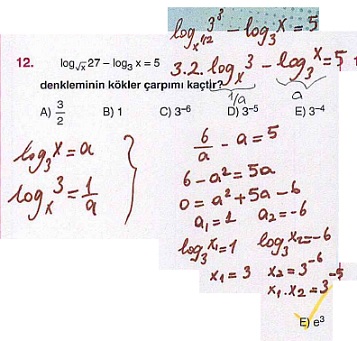 log_{x^{1/2}} 3^3 - log_3 x = 5
12. log_{√x} 27 – log_3 x = 5
3.2. log_x 3 - log_3 x = 5
denkleminin kökler çarpımı kaçtır?
1/a a
A) 3/2 B) 1 C) 3^{–6} D) 3^{–5} E) 3^{–4}
log_3 x = a
log_x 3 = 1/a
6/a - a = 5
6 - a^2 = 5a
0 = a^2 + 5a - 6
a_1 = 1 a_2 = -6
log_3 x_1 = 1 log_3 x_2 = -6
x_1 = 3 x_2 = 3^{-6}
x_1 . x_2 = 3^{-5}
E) e^3